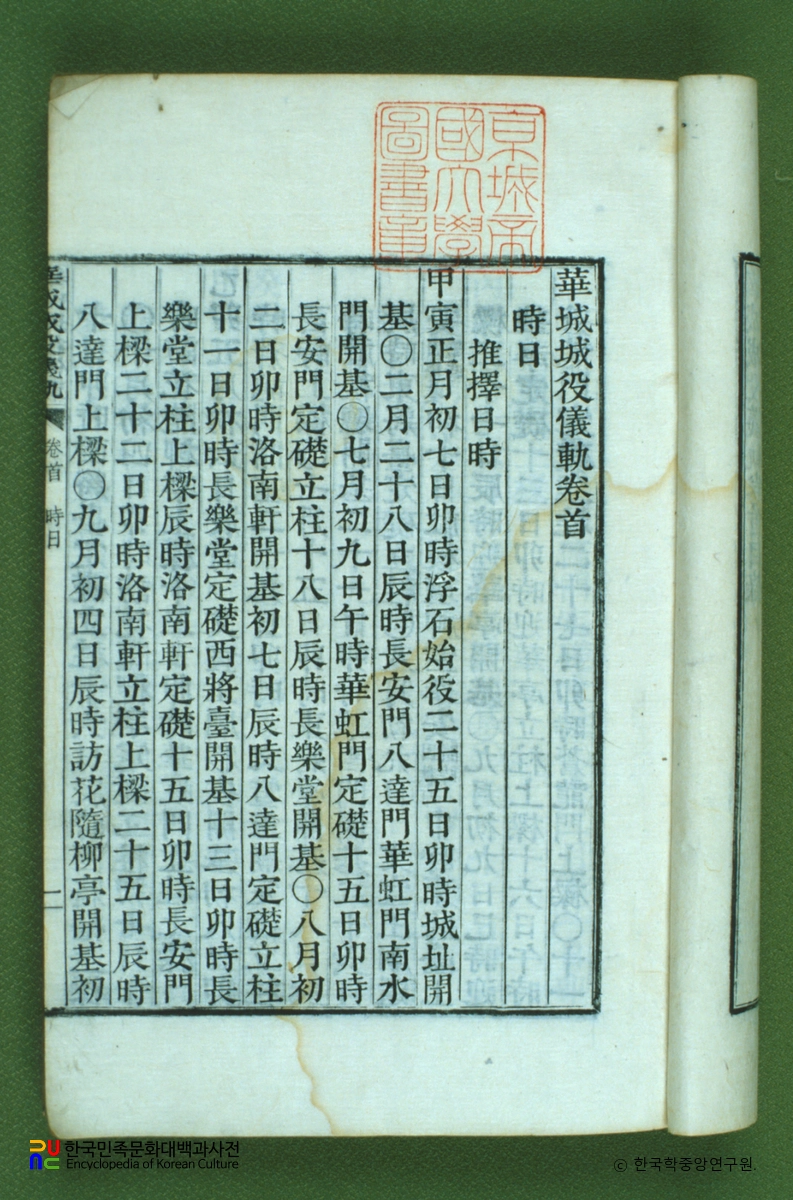 京城帝
國大學
圖書章
華城城役儀軌卷首
時日
推擇日時
甲寅正月初七日卯時浮石始役二十五日卯時城址開
基〇二月二十八日辰時長安門八達門華虹門南水
門開基〇七月初九日午時華虹門定礎十五日卯時
長安門定礎立柱十八日辰時長樂堂開基〇八月初
二日卯時洛南軒開基初七日辰時八達門定礎立柱
十一日卯時長樂堂定礎西將臺開基十三日卯時長
樂堂立柱上樑辰時洛南軒定礎十五日卯時長安門
上樑二十二日卯時洛南軒立柱上樑二十五日辰時
八達門上樑〇九月初四日辰時訪花隨柳亭開基初
華城城役儀軌 卷首 時日 一
한국민족문화대백과사전
Encyclopedia of Korean Culture
© 한국학중앙연구원.